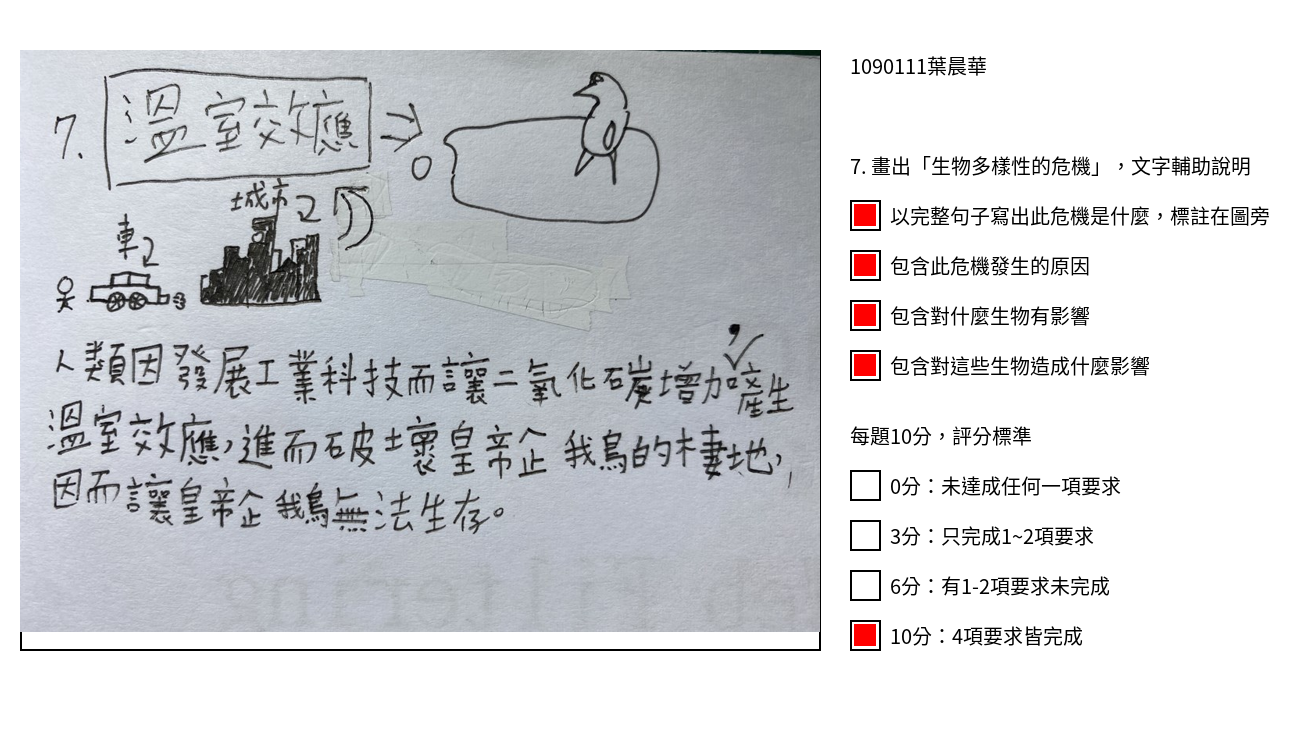 1090111葉晨華
7. 溫室效應
城市
車
人類因發展工業科技而讓二氧化碳增加,產生
溫室效應,進而破壞皇帝企我鳥的棲地,
因而讓皇帝企我鳥無法生存。
7. 畫出「生物多樣性的危機」,文字輔助說明
以完整句子寫出此危機是什麼,標註在圖旁
包含此危機發生的原因
包含對什麼生物有影響
包含對這些生物造成什麼影響
每題10分,評分標準
0分：未達成任何一項要求
3分：只完成1~2項要求
6分：有1-2項要求未完成
10分：4項要求皆完成